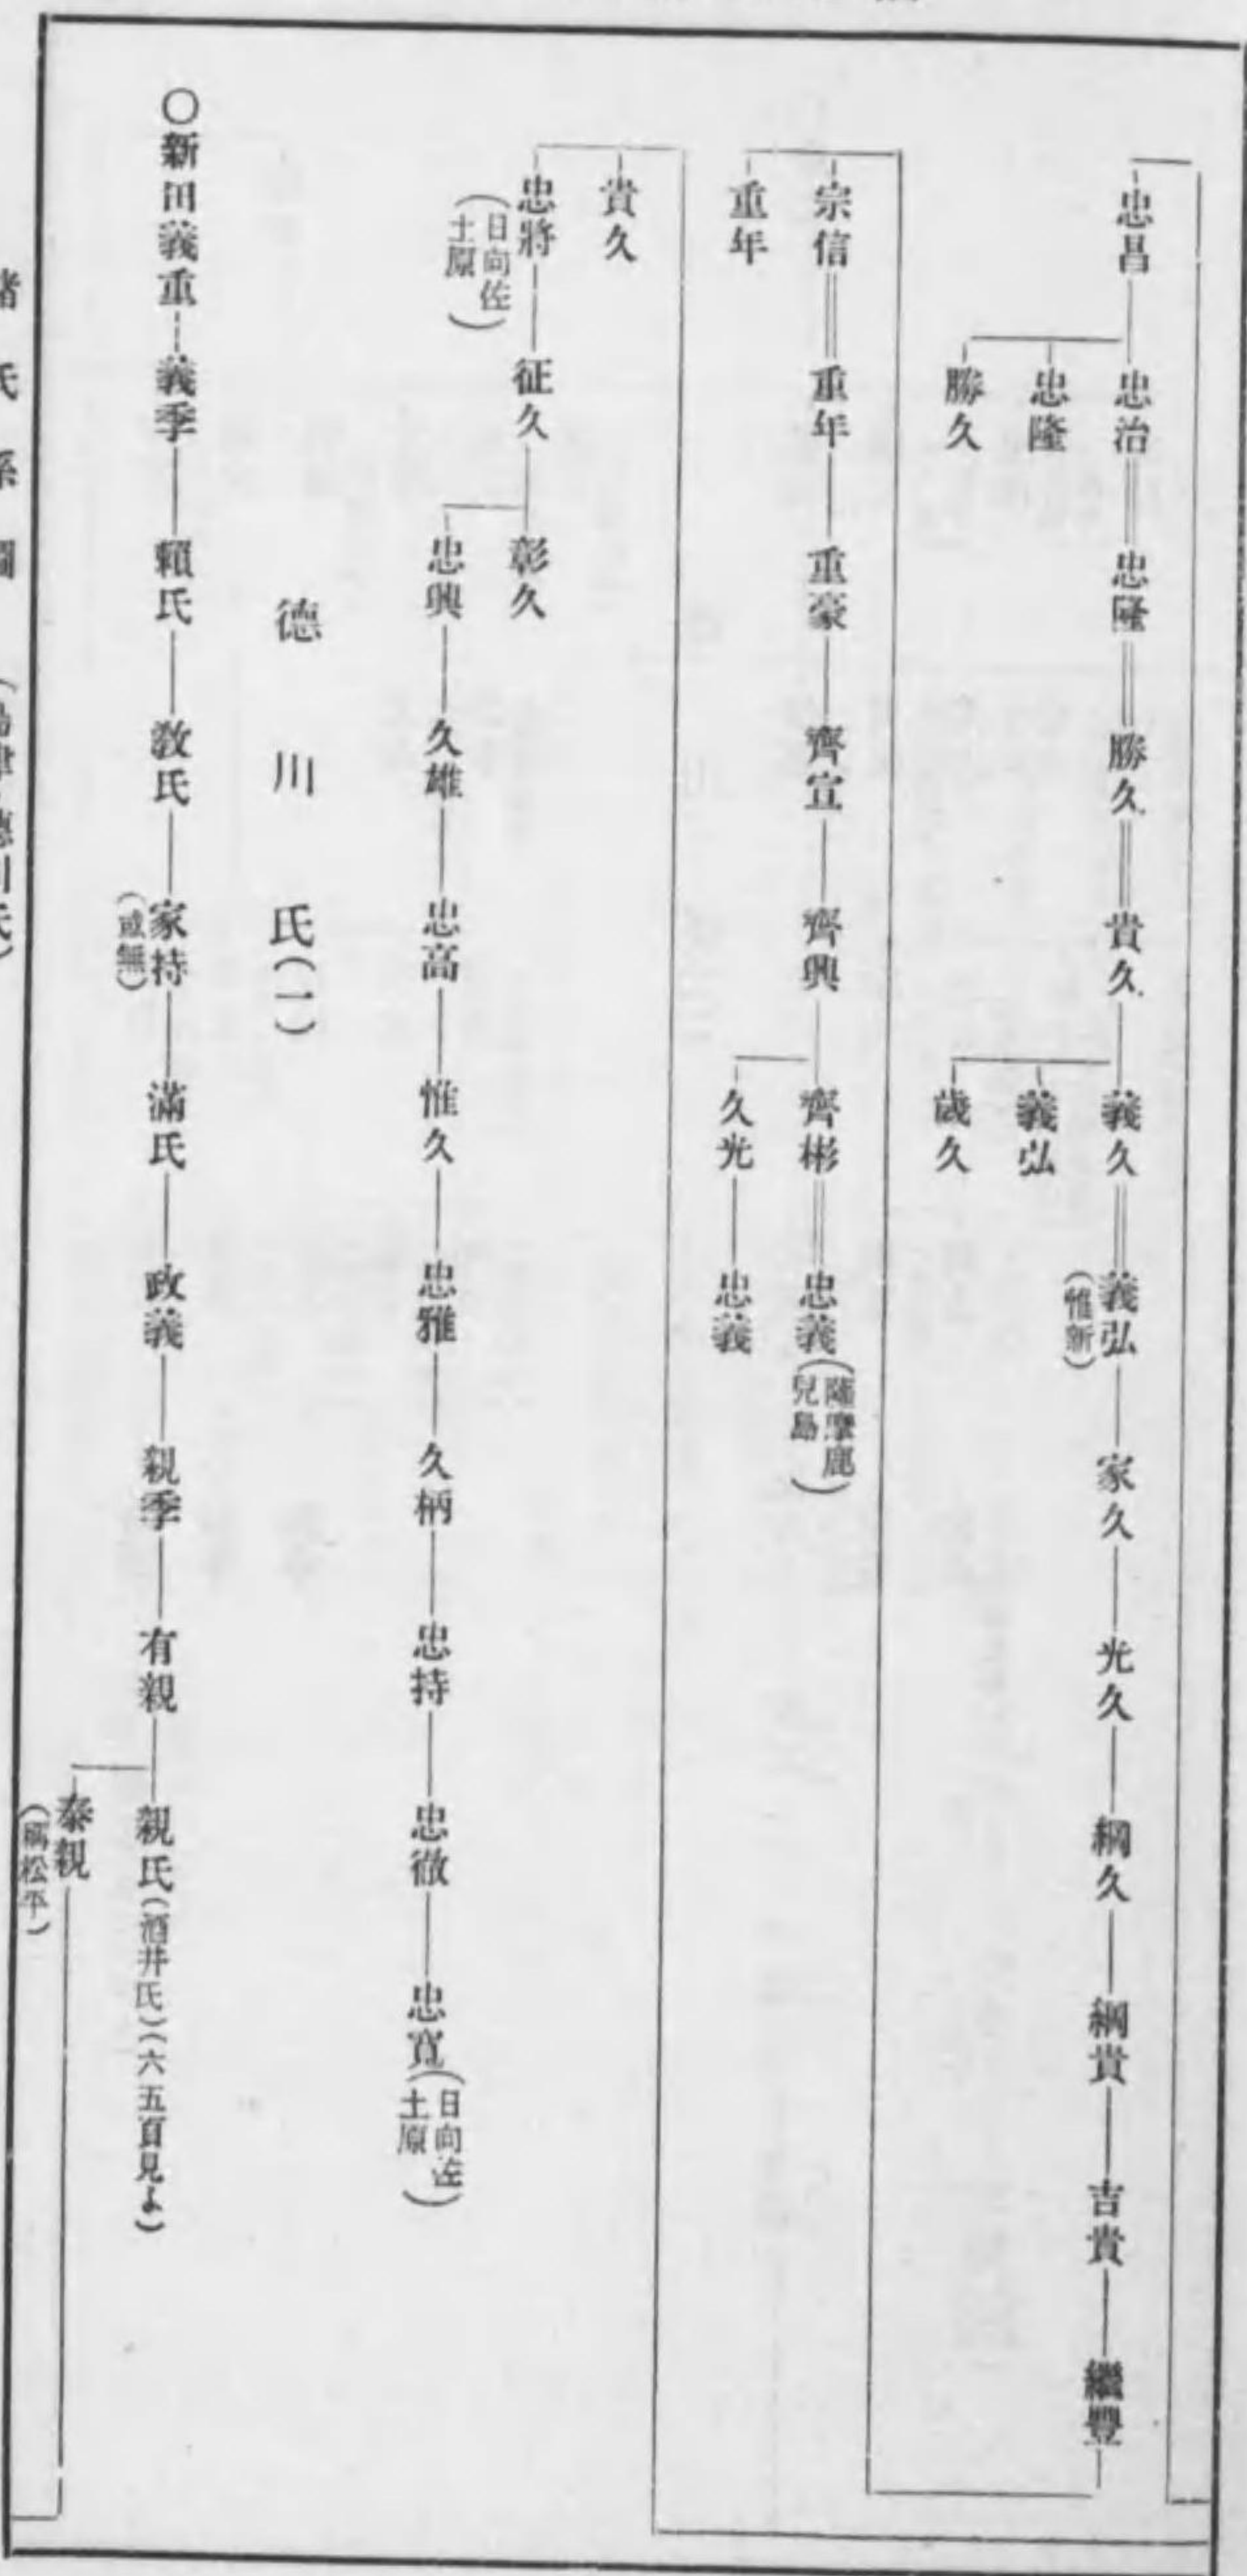 忠昌 忠治 忠隆 勝久 貴久 義久 義弘(惟新) 家久 光久 綱久 綱貴 吉貴 繼豐
忠隆 義弘
勝久 歲久
宗信 重年 重豪 齊宣 齊興 齊彬 忠義(薩摩鹿兒島)
重年 久光 忠義
貴久
忠將(日向佐土原) 征久 彰久
忠興 久雄 忠高 惟久 忠雅 久柄 忠持 忠徹 忠寬(日向佐土原)
德川氏(一)
〇新田義重 義季 賴氏 敎氏 家持(或無) 滿氏 政義 親季 有親 親氏(酒井氏)(六五頁見よ)
泰親(稱松平)
諸氏系圖 (島津・德川氏)